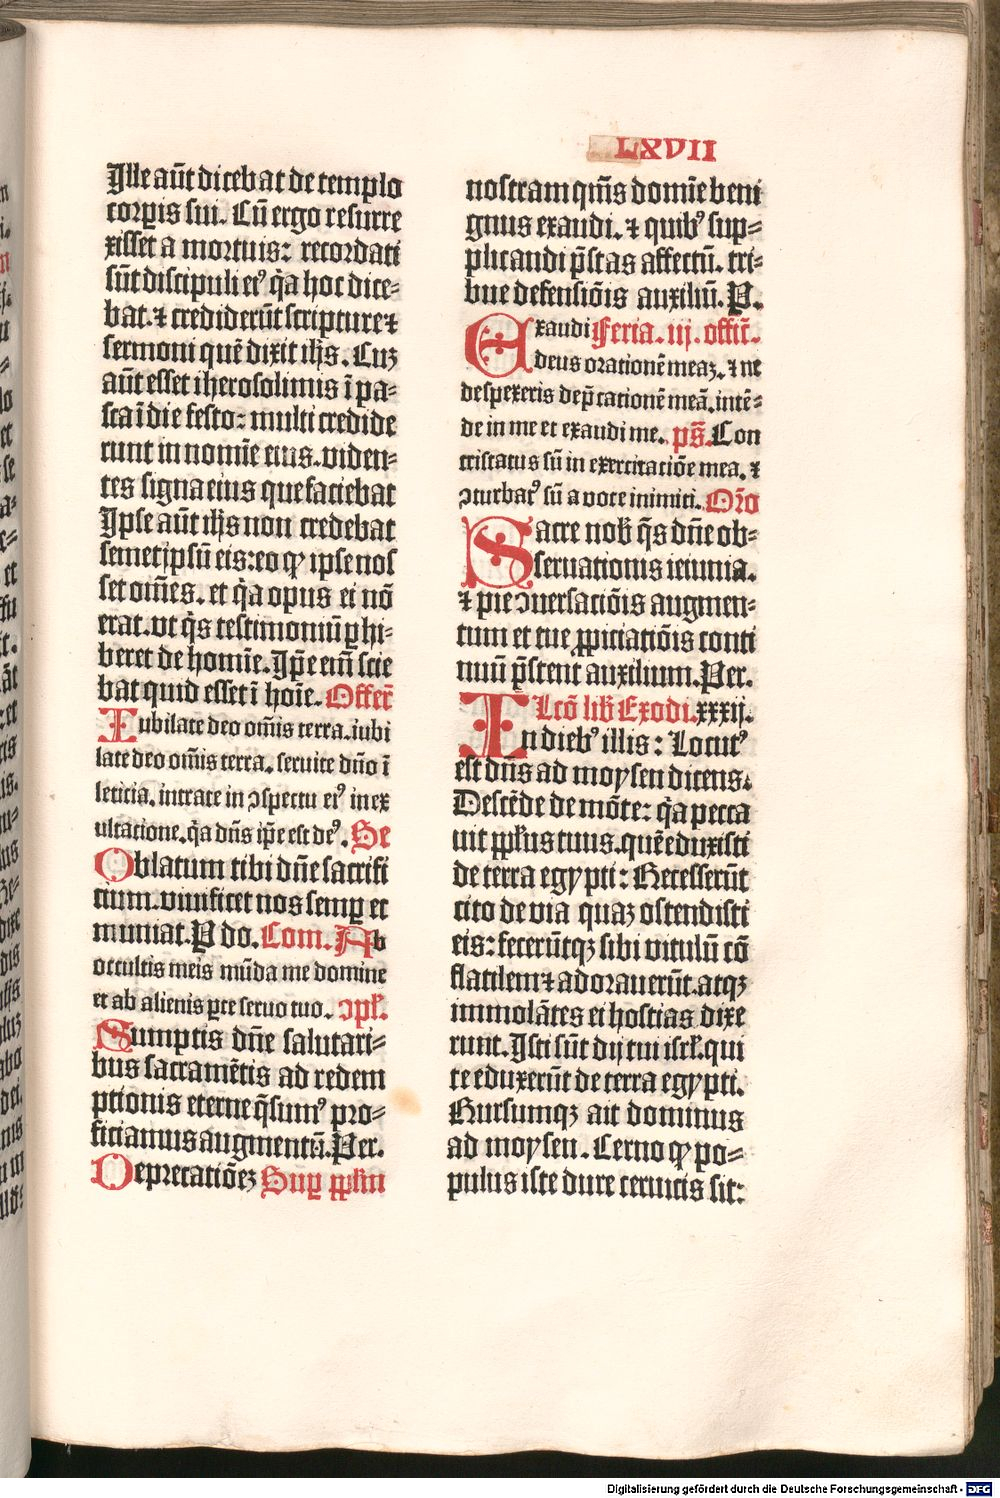 LXVII
Ille aūt dicebat de templo
corꝑis sui. Cū ergo resurre
xisset a mortuis: recordati
sūt discipuli eiꝰ q̄a hoc dice-
bat. ⁊ crediderūt scripture ⁊
sermoni quē dixit ihs. Cuꝫ
aūt esset iherosolimis ī pa-
sca ī die festo: multi credide
runt in nomīe eius. viden-
tes signa eius que faciebat
Ipse aūt ihs non credebat
semetipsū eis: eo ꝙ ipse nos
set om̄es. et q̄a opus ei nō
erat. vt q̄s testimoniū ꝑhi-
beret de homīe. Ip̄e em̄ scie
bat quid esset ī hoīe. Offert̄
Iubilate deo om̄is terra. iubi
late deo om̄is terra. seruite dn̄o ī
leticia. intrate in ↄspectu eiꝰ in ex
ultatione. q̄a dn̄s ip̄e est deꝰ. Se
Oblatum tibi dn̄e sacrifi
cium. viuificet nos semꝑ et
muniat. P do. Com. Ab
occultis meis mūda me domine
et ab alienis ꝑce seruo tuo. ↄpl̄.
Sumptis dn̄e salutari-
bus sacramētis ad redem
ptionis eterne q̄sumꝰ pro-
ficiamus augmentū. Per.
Deprecatiōeꝫ Suꝑ pp̄lm
nostram qm̄s domīe beni
gnus exaudi. ⁊ quibꝰ sup-
plicandi p̄stas affectū. tri-
bue defensiōis auxiliū. P.
Exaudi Feria. iij. offic̄.
deus orationē meaꝫ. ⁊ ne
despexeris dep̄cationē meā. intē-
de in me et exaudi me. ps̄. Con
tristatus sū in exercitatiōe mea. ⁊
ↄturbatꝰ sū a voce inimici. Or̄o
Sacre nob̄ q̄s dn̄e ob-
seruationis ieiunia.
⁊ pie ↄuersaciōis augmen-
tum et tue ꝓpiciatiōis conti
nuū p̄stent auxilium. Per.
Lcō lib̄ Exodi. xxxij.
In diebꝰ illis: Locutꝰ
est dn̄s ad moysen dicens.
Descēde de mōte: q̄a pecca
uit pp̄lus tuus. quē eduxisti
de terra egypti: Recesserūt
cito de via quaꝫ ostendisti
eis: fecerūtqꝫ sibi vitulū cō
flatilem ⁊ adorauerūt. atqꝫ
immolātes ei hostias dixe
runt. Isti sūt dij tui isrl̄. qui
te eduxerūt de terra egypti.
Rursumqꝫ ait dominus
ad moysen. Cerno ꝙ po-
pulus iste dure ceruicis sit:
Digitalisierung gefördert durch die Deutsche Forschungsgemeinschaft - DFG